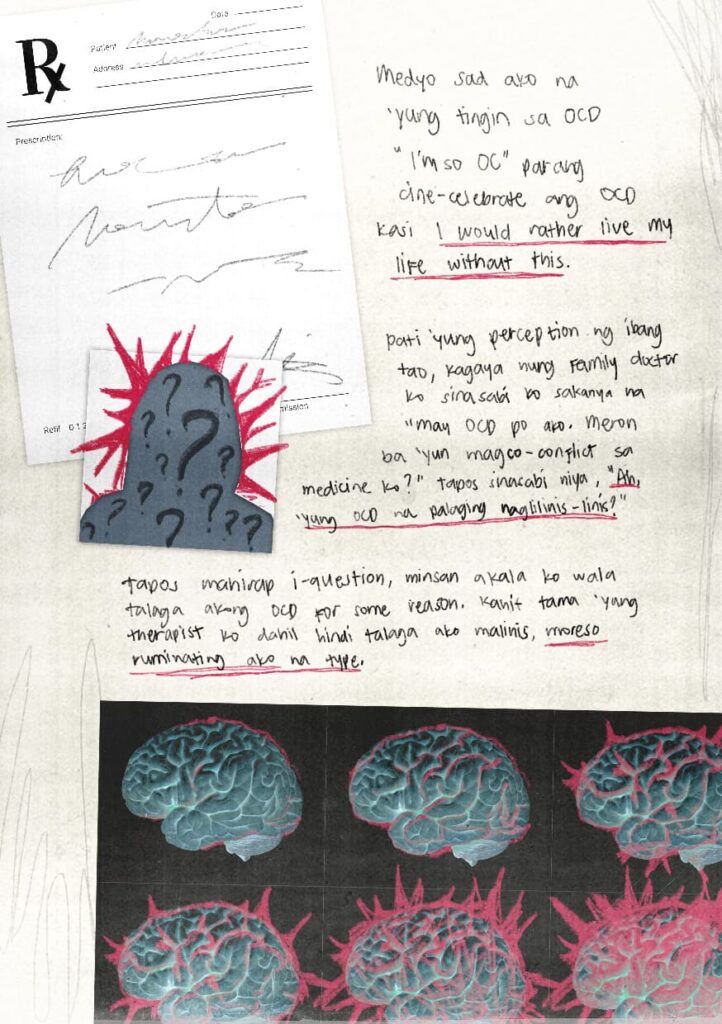 Rx
Date
Patient
Address
Prescription:
Refill 0 1 2
Medyo sad ako na
'yung tingin sa OCD
"I'm so OC" parang
cine-celebrate ang OCD
kasi I would rather live my
life without this.
pati 'yung perception ng ibang
tao, kagaya nung family doctor
ko sinasabi ko sakanya na
"may OCD po ako. Meron
ba 'yun magco-conflict sa
medicine ko?" tapos sinasabi niya, "Ah,
'yung OCD na palaging naglilinis-linis?"
? ? ? ? ? ? ? ? ? ?
tapos mahirap i-question, minsan akala ko wala
talaga akong OCD for some reason. Kahit tama 'yang
therapist ko dahil hindi talaga ako malinis, moreso
ruminating ako na type.